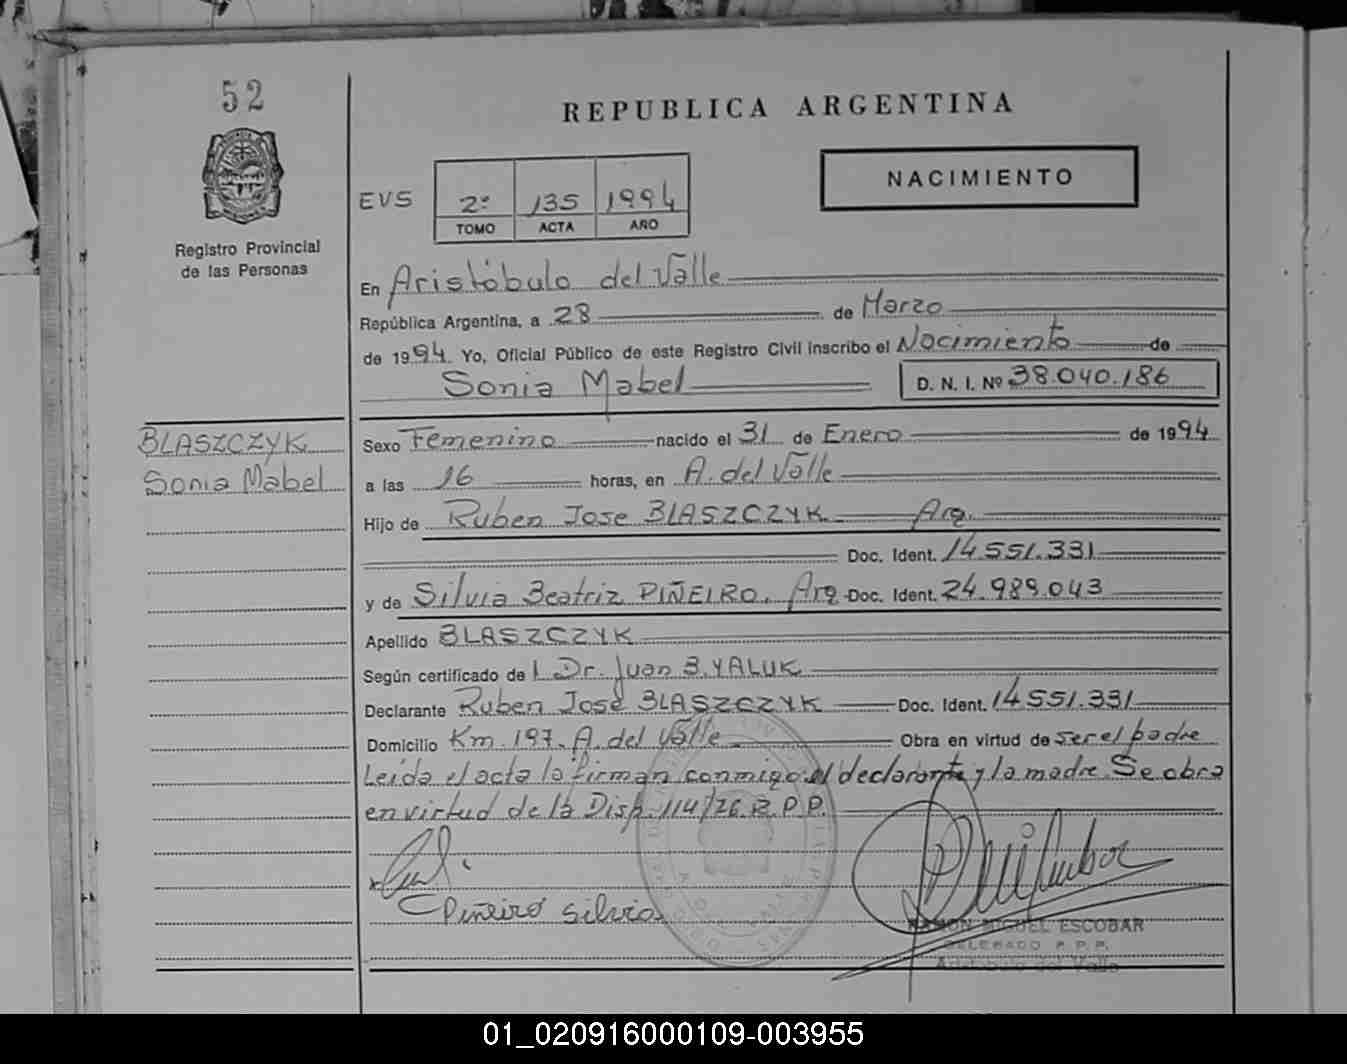 52
REPUBLICA ARGENTINA
Registro Provincial
de las Personas
EVS
2º 135 1994
TOMO ACTA AÑO
NACIMIENTO
En Aristóbulo del Valle
República Argentina, a 28 de Marzo
de 1994. Yo, Oficial Público de este Registro Civil inscribo el Nacimiento de
Sonia Mabel D. N. I. Nº 38.040.186
BLASZCZYK
Sonia Mabel
Sexo Femenino nacido el 31 de Enero de 1994
a las 16 horas, en A. del Valle
Hijo de Ruben Jose BLASZCZYK Arg.
Doc. Ident. 14.551.331
y de Silvia Beatriz PIÑEIRO. Arg Doc. Ident. 24.989.043
Apellido BLASZCZYK
Según certificado de l Dr. Juan B. YALUK
Declarante Ruben José BLASZCZYK Doc. Ident. 14.551.331
Domicilio Km. 197. A. del Valle Obra en virtud de ser el padre
Leída el acta la firman conmigo el declarante y la madre. Se obra
en virtud de la Disp. 114/76. R.P.P.
Piñeiro Silvia
RAMON MIGUEL ESCOBAR
DELEGADO R.P.P.
Aristobulo del Valle
01_020916000109-003955